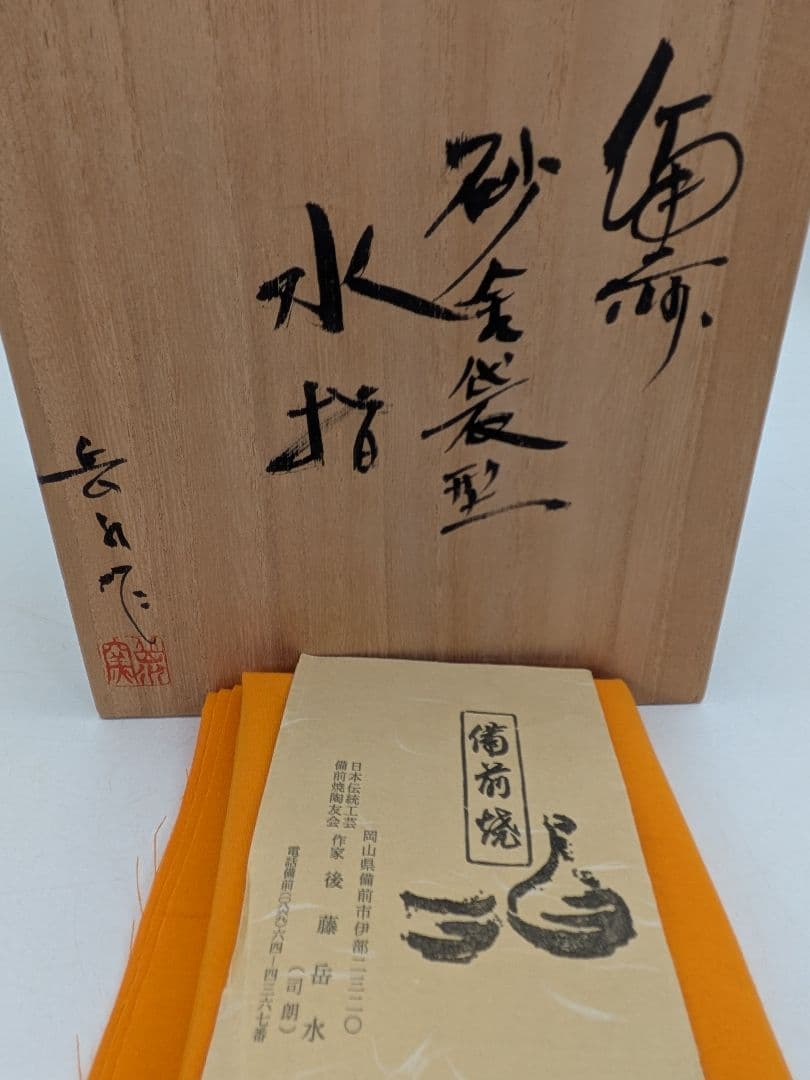 備前
砂金袋型
水指
岳水作
備前焼
岡山県備前市伊部二三二〇
日本伝統工芸
備前焼陶友会
作家 後藤岳水
(司朗)
電話備前(〇八六九)六四-四三六七番